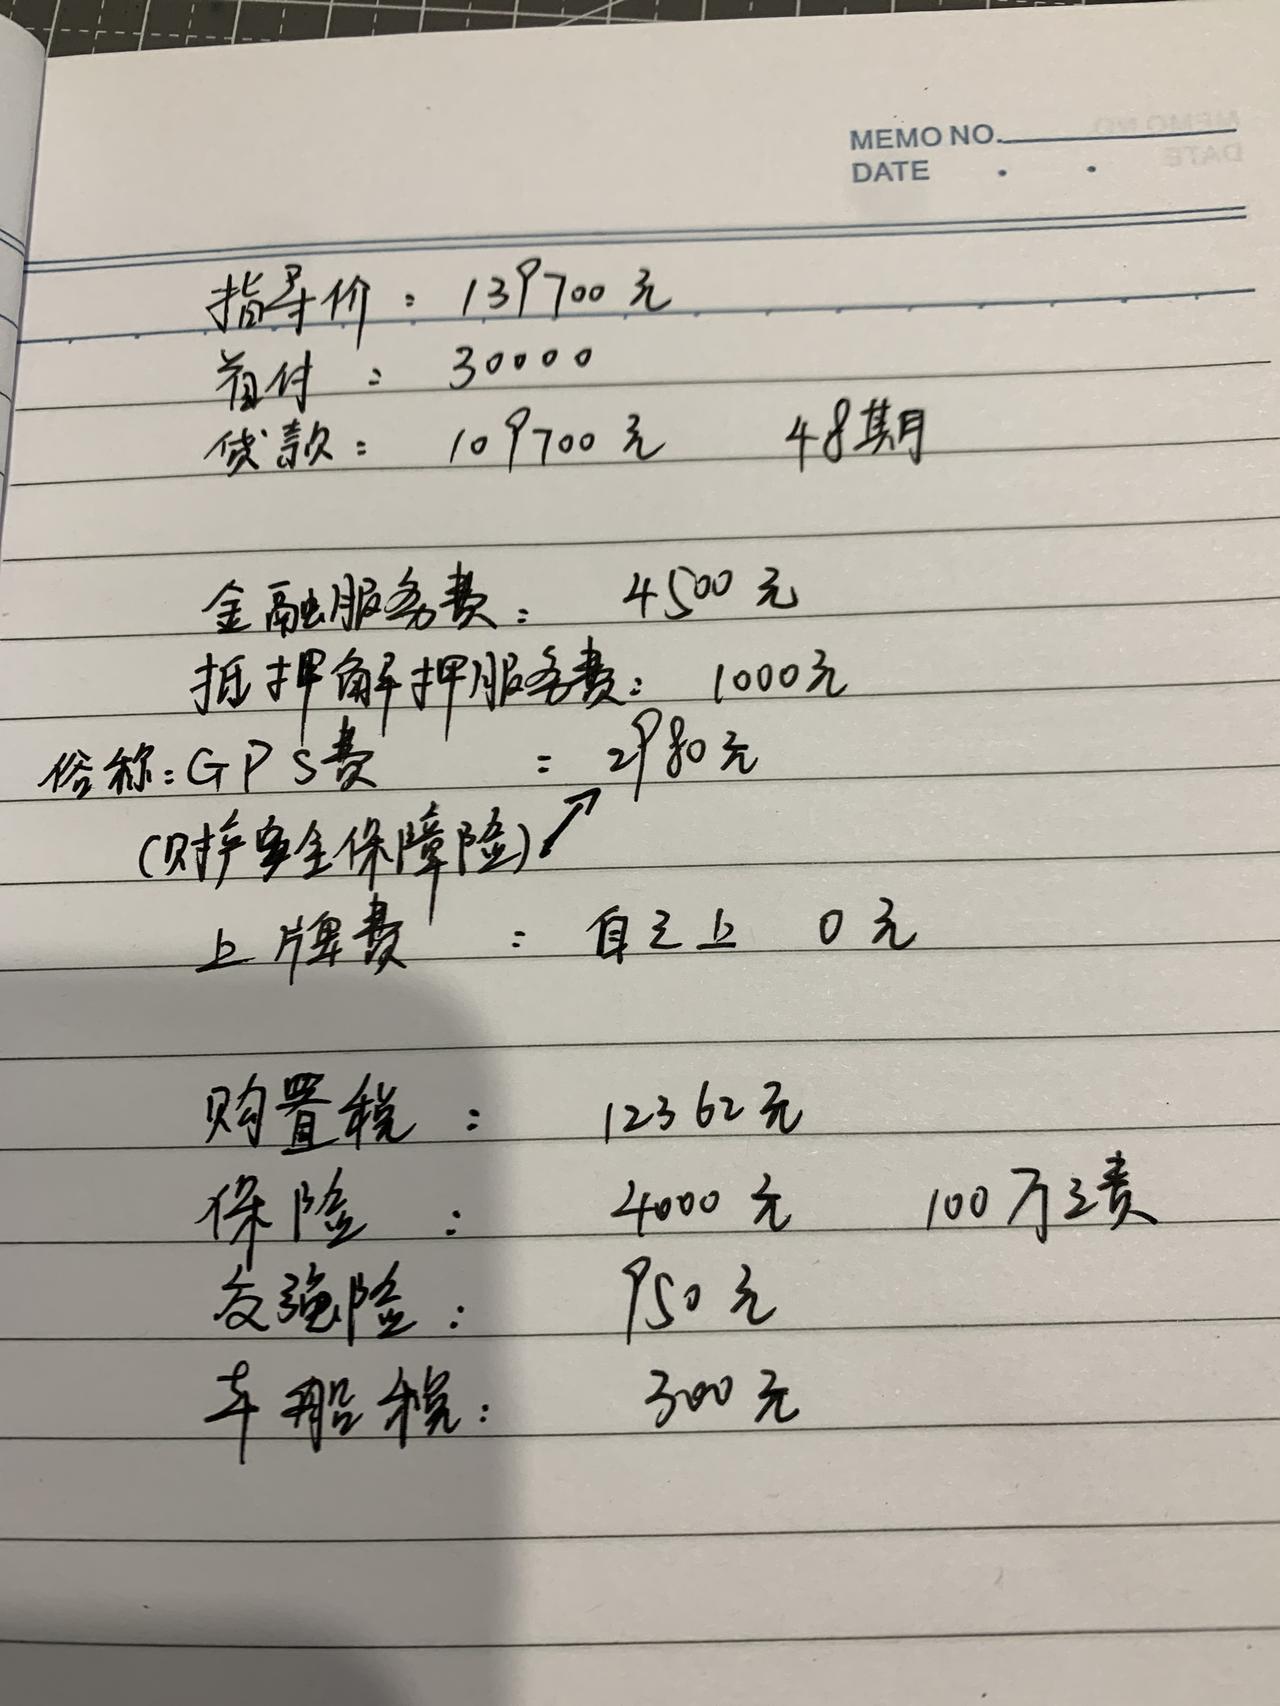 MEMO NO.
DATE . .
指导价：139700元
首付：30000
贷款：109700元 48期
金融服务费：4500元
抵押解押服务费：1000元
俗称：GPS费：2980元
(财护安全保障险)
上牌费：自己上 0元
购置税：12362元
保险：4000元 100万三责
交强险：950元
车船税：300元